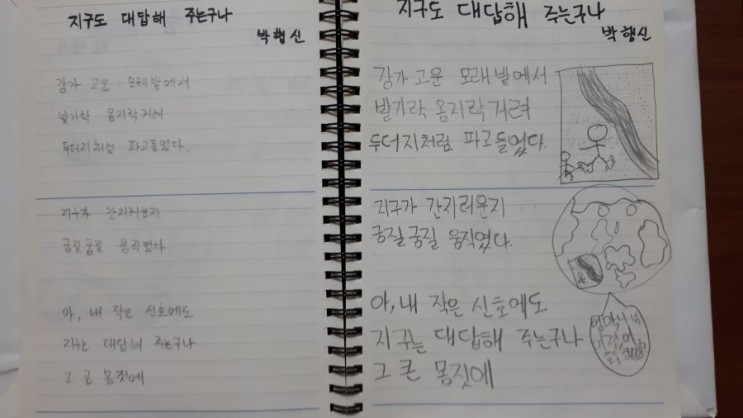 지구도 대답해 주는구나
박행신
강가 고운 모래밭에서
발가락 옴지락거려
두더지처럼 파고들었다.
지구가 간지러운지
굼질굼질 움직였다
아, 내 작은 신호에도
지구는 대답해 주는구나
그 큰 몸짓에
지구도 대답해 주는구나
박행신
강가 고운 모래밭에서
발가락 옴지락거려
두더지처럼 파고들었다.
지구가 간지러운지
굼질굼질 움직였다.
아, 내 작은 신호에도
지구는 대답해 주는구나
그 큰 몸짓에